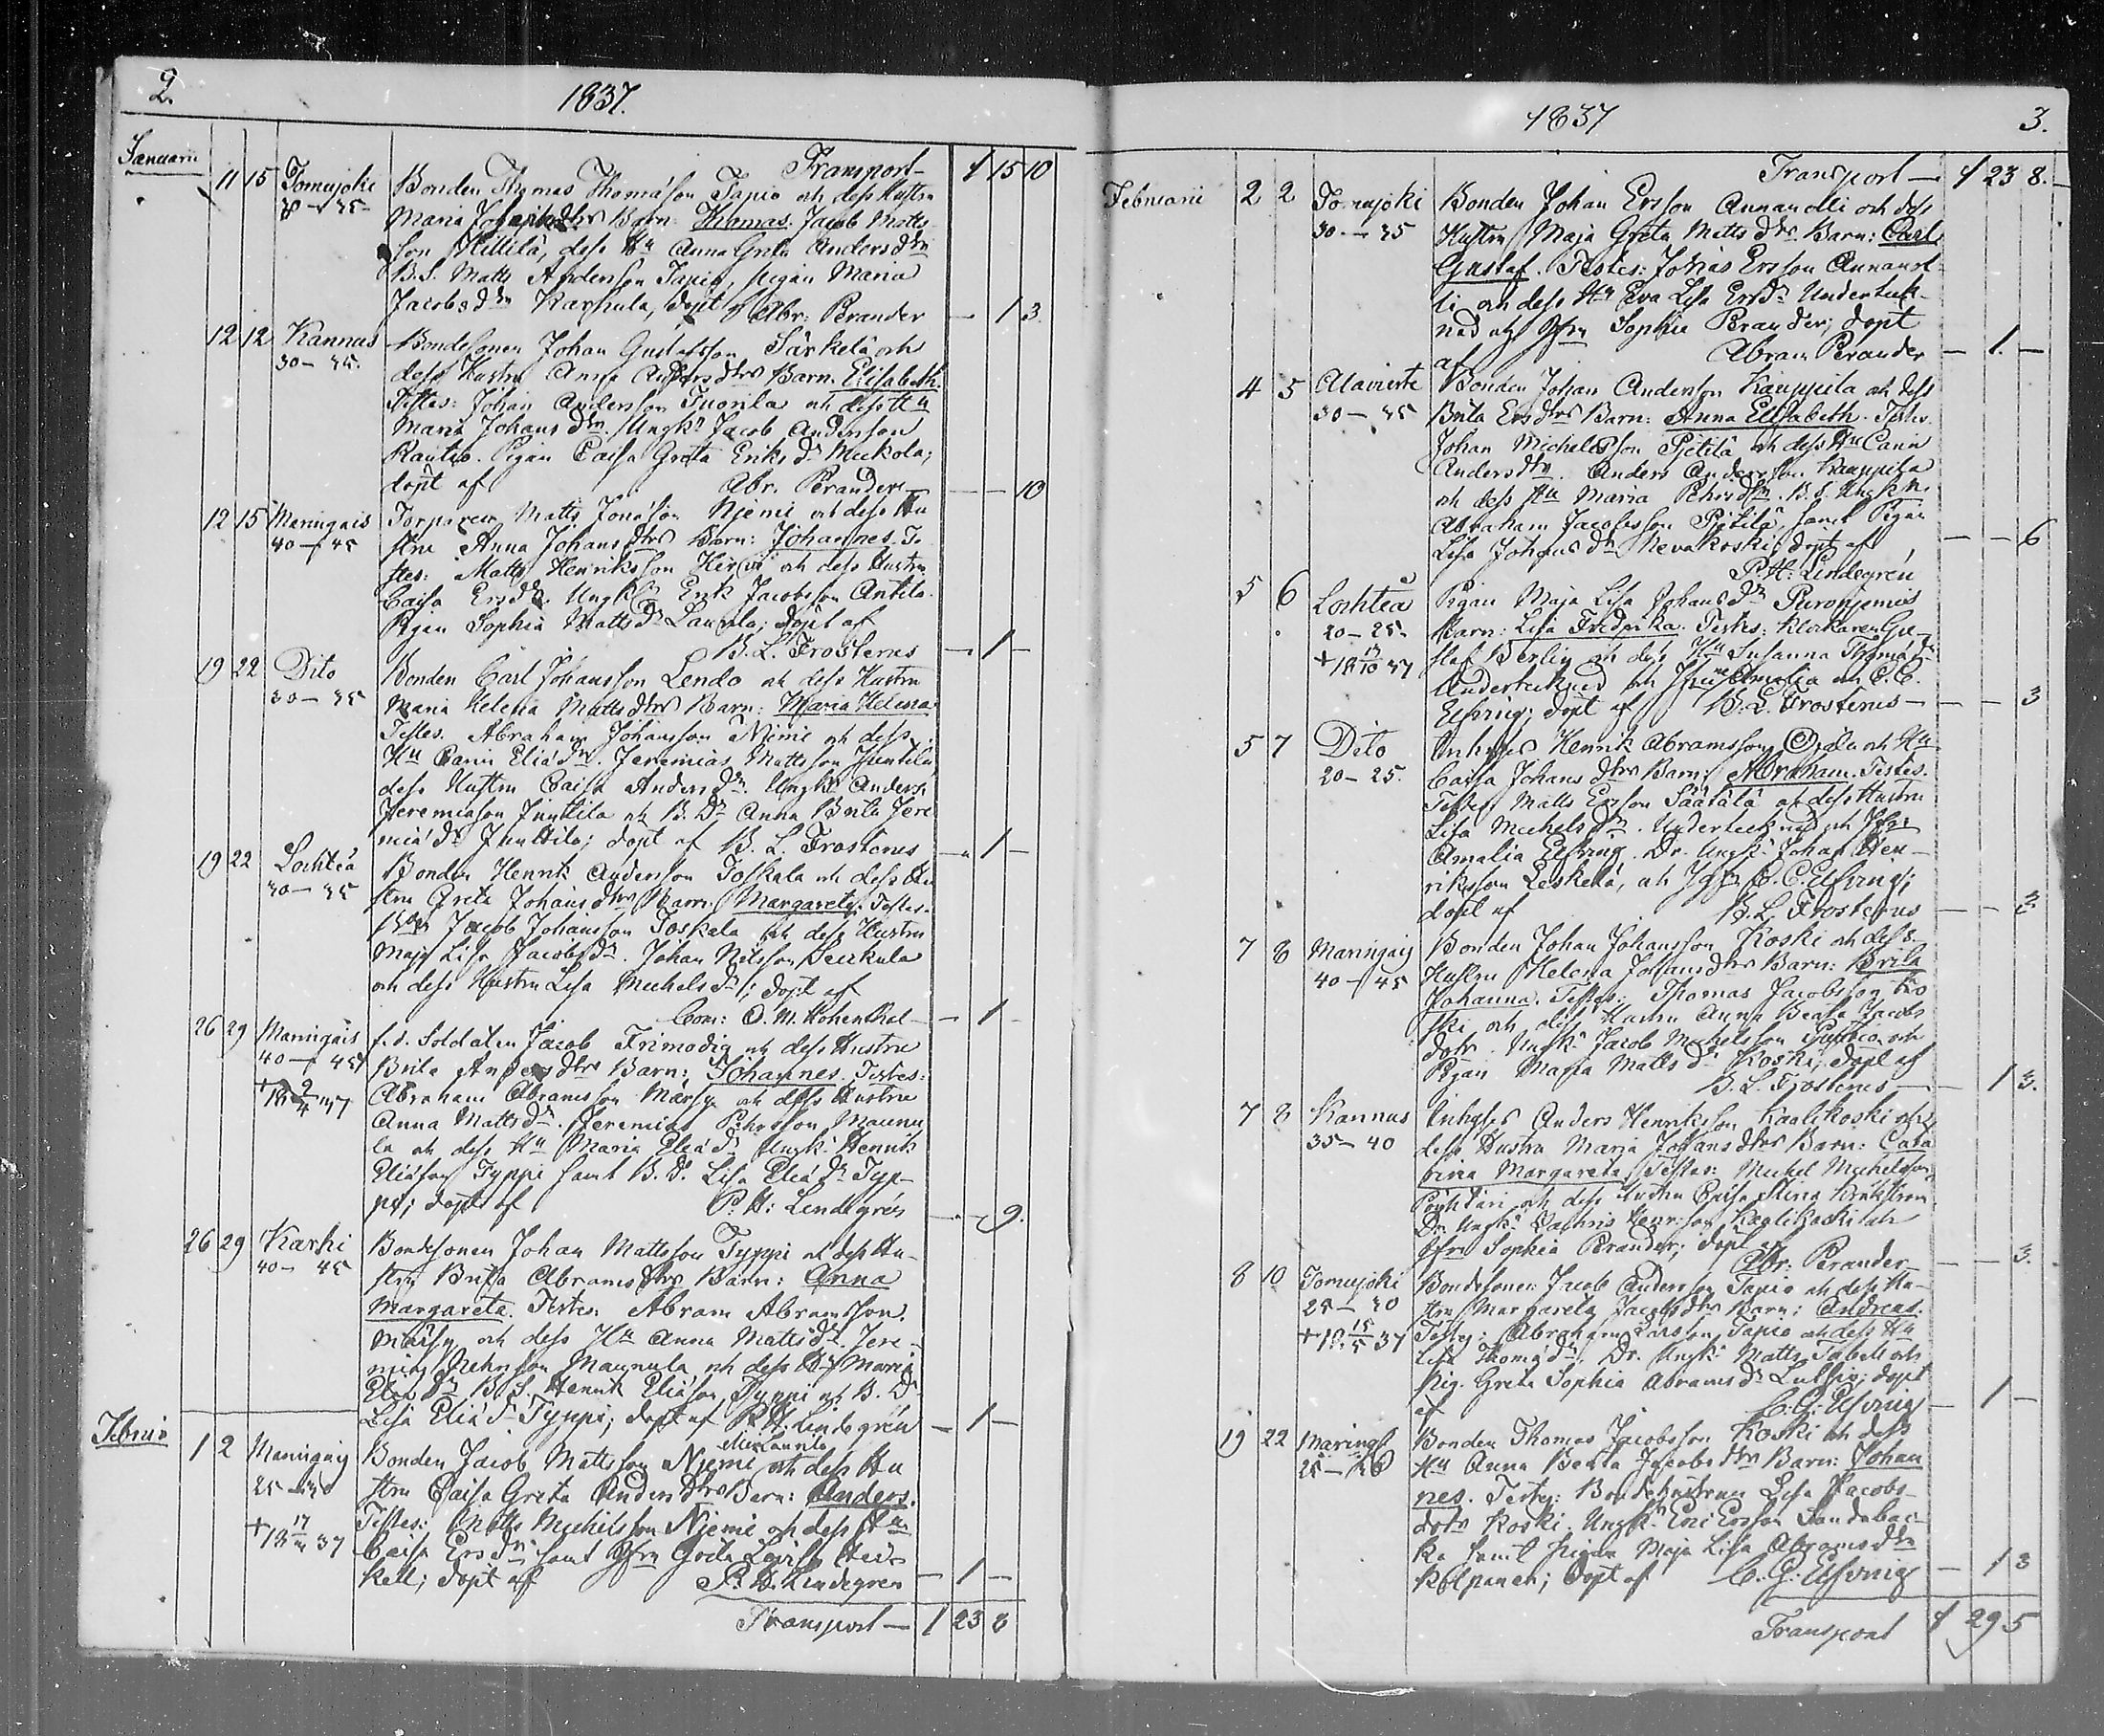 2.
1837.
Januarii
Transport 1 15 10
11 15 Tomujoki Bonden Thomas Thomasson Tapio och dess Hustru
35 Maria Barn: Thomas. Jacob Matts
son Hillilä, dess Hu Anna Greta Andersdtr
B.S. Matts Andersson Tapio, pigan Maria
Jacobsdtr Karhula, döpt af Abr: Perander — 1 3
12 12 Kannus Bondesonen Johan Gustafsson Särkelä och
30 — 35. dess Hustru Anna Andersdtrs Barn. Elisabeth.
Testes: Johan Andersson Tuorila och dess Hu
Maria Johansdtr. Ungk. Jacob Andersson
Rautio. Pigan Caisa Greta Eriksdr Mickola;
döpt af Abr. Perander — — 10
12 15 Maringais Torparen Matts Jonasson Njemi och dess Hu
40 — 45 stru Anna Johansdtrs Barn: Johannes. Te
stes: Matts Henriksson Hirvi och dess Hustru
Caisa Ersdr. Ungk. Erik Jacobsson Antila.
Pigan Sophia Mattsdr Laurila; döpt af
B. L. Frosterus — 1 —
19 22 Dito Bonden Carl Johansson Lendo och dess Hustru
30 — 35 Maria Helena Mattsdtrs Barn: Maria Helena
Testes. Abraham Johansson Njemi och dess
Hu Carin Eliædr. Jeremias Mattsson Junttila,
dess Hustru Caisa Andersdr. Ungk. Anders
Jeremiasson Junttila och B. Dr Anna Brita Jere
miædr Junttila; döpt af B. L. Frosterus — 1 —
19 22 Lochteå Bonden Henrik Andersson Toskala och dess Hu
30 — 35 stru Greta Johansdtrs Barn: Margareta. Testes.
Jacob Johansson Toskala och dess Hustru
Maja Lisa Jacobsdr. Johan Nilsson Peckula
och dess Hustru Lisa Michelsdr; döpt af
Com: O. M. Hohenthal — 1 —
26 29 Maringais f.d. Soldaten Jacob Frimodig och dess Hustru
40 — 45 Brita Andersdtrs Barn: Johannes. Testes:
Abraham Abramsson Märsy och dess Hustru
Anna Mattsdr. Jeremias Pehrsson Maunu
la och dess Hu Maria Eliædr Ungk. Henrik
Eliæson Typpi samt B. Dr. Lisa Eliædr Typ-
pi; döpt af P. H: Lindegrén — — 9.
26 29 Karhi Bondesonen Johan Mattsson Typpi och dess Hu-
40 — 45 stru Brita Abramsdtrs Barn: Anna
Margareta. Testes: Abram Abramsson
Märsy och dess Hu Anna Mattsdr. Jere-
mias Pehrsson Maunula och dess Hu Maria
Eliædr B.S. Henrik Eliæson Typpi och B. Dr
Lisa Eliædr Typpi; döpt af P. H. Lindegrén — 1 —
Februarii
eller Launila
1 2 Maringais Bonden Jacob Mattsson Njemi och dess Hu
25 — 30 stru Caisa Greta Andersdtrs Barn: Anders.
Testes: Matts Michelsson Njemi och dess Hu
Caisa Ersdr, samt Jfru Greta Lovisa Heid-
kell; döpt af P. H. Lindegrén — 1 —
Transport — 1 23 8
1837
3.
Transport — 1 23 8. —
Februarii 2 2 Tomujoki Bonden Johan Ersson Annanolli och dess
30 — 35 Hustru Maja Greta Mattsdtrs Barn: Carl
Gustaf. Testes: Johas Ersson Annanol-
li och dess Hu Eva Lisa Ersdr. Underteck-
nad och Jfru Sophie Perander; döpt
af Abram Perander — 1. —
4 5 Alavieste Bonden Johan Andersson Kauppila och dess
30 — 35 Brita Ersdtrs Barn: Anna Elisabeth. Testes.
Johan Michelsson Pjetilä och dess Hu Carin
Andersdtr. Anders Andersson Kauppila
och dess Hu Maria Pehrsdtr. B. S. Ungkn.
Abraham Jacobsson Pjetilä, samt Pigan
Lisa Johansdr Nevakoski; döpt af — — 6
P. H: Lindegrén
5 6 Lochteå Pigan Maja Lisa Johansdr Puronjemis
20 — 25. Barn: Lisa Fredrika. Testes: Klockaren Gu-
+ 18 37 staf Berlin och dess Hu Susanna Thomædr
Undertecknad och Jfru Amalia och C. C.
Elfving; döpt af B. L. Frosterus — — — 3
5 7 Dito Inhyses Henrik Abramsson Ojala och Hu
20 — 25. Caisa Johansdtrs Barn: Abraham. Testes.
Testes Matts Ersson Säätälä och dess Hustru
Lisa Michelsdr. Undertecknad och Jfru
Amalia Elfving. Dr. Ungk. Johan Hen-
riksson Leskelä, och Jgfr C. C. Elfving;
döpt af B. L. Frosterus — — 3
7 8 Maringais Bonden Johan Johansson Koski och dess
40 — 45 Hustru Helena Johansdtrs Barn: Brita
Johanna. Testes: Thomas Jacobsson Ko
ski och dess Hustru Anna Beata Jacobs
dotr. Ungk. Jacob Michelsson och
Pigan Maria Mattsdr Koski; döpt af
B. L. Frosterus — 1 3.
7 8 Kannus Inhyses Anders Henriksson Kaalikoski och
35 — 40 dess Hustru Maria Johansdtrs Barn: Catha
rina Margareta. Testes: Michel Michelsson
och dess Hustru Caisa Stina
Dr. Ungk. Zachris Henr:son Kaalikoski och
Jfru Sophia Perander; döpt af
Abr. Perander — — 3.
8 10 Tomujoki Bondesonen Jacob Andersson Tapio och dess Hu-
25 — 30 stru Margareta Jacobsdtrs Barn: Andreas.
+ 18 15/5 37 Testes: Abraham Larsson Tapio och dess Hu
Lisa Thomædr. Dr. Ungk. Matts Tabell och
Pig. Greta Sophia Abramsdr Luthio; döpt
af C. G: Elfving — 1 —
19 22 Marings Bonden Thomas Jacobsson Koski och dess
25 — Hu Anna Beata Jacobsdtrs Barn: Johan
nes. Testes: Bondehustrun Lisa Jacobs-
dotr Koski. Ungk. Eric Ersson Sandabac-
ka samt Pigan Maja Lisa Abramsdtr
Kolpanen; döpt af C. G: Elfving — 1 3
Transport 1 29 5